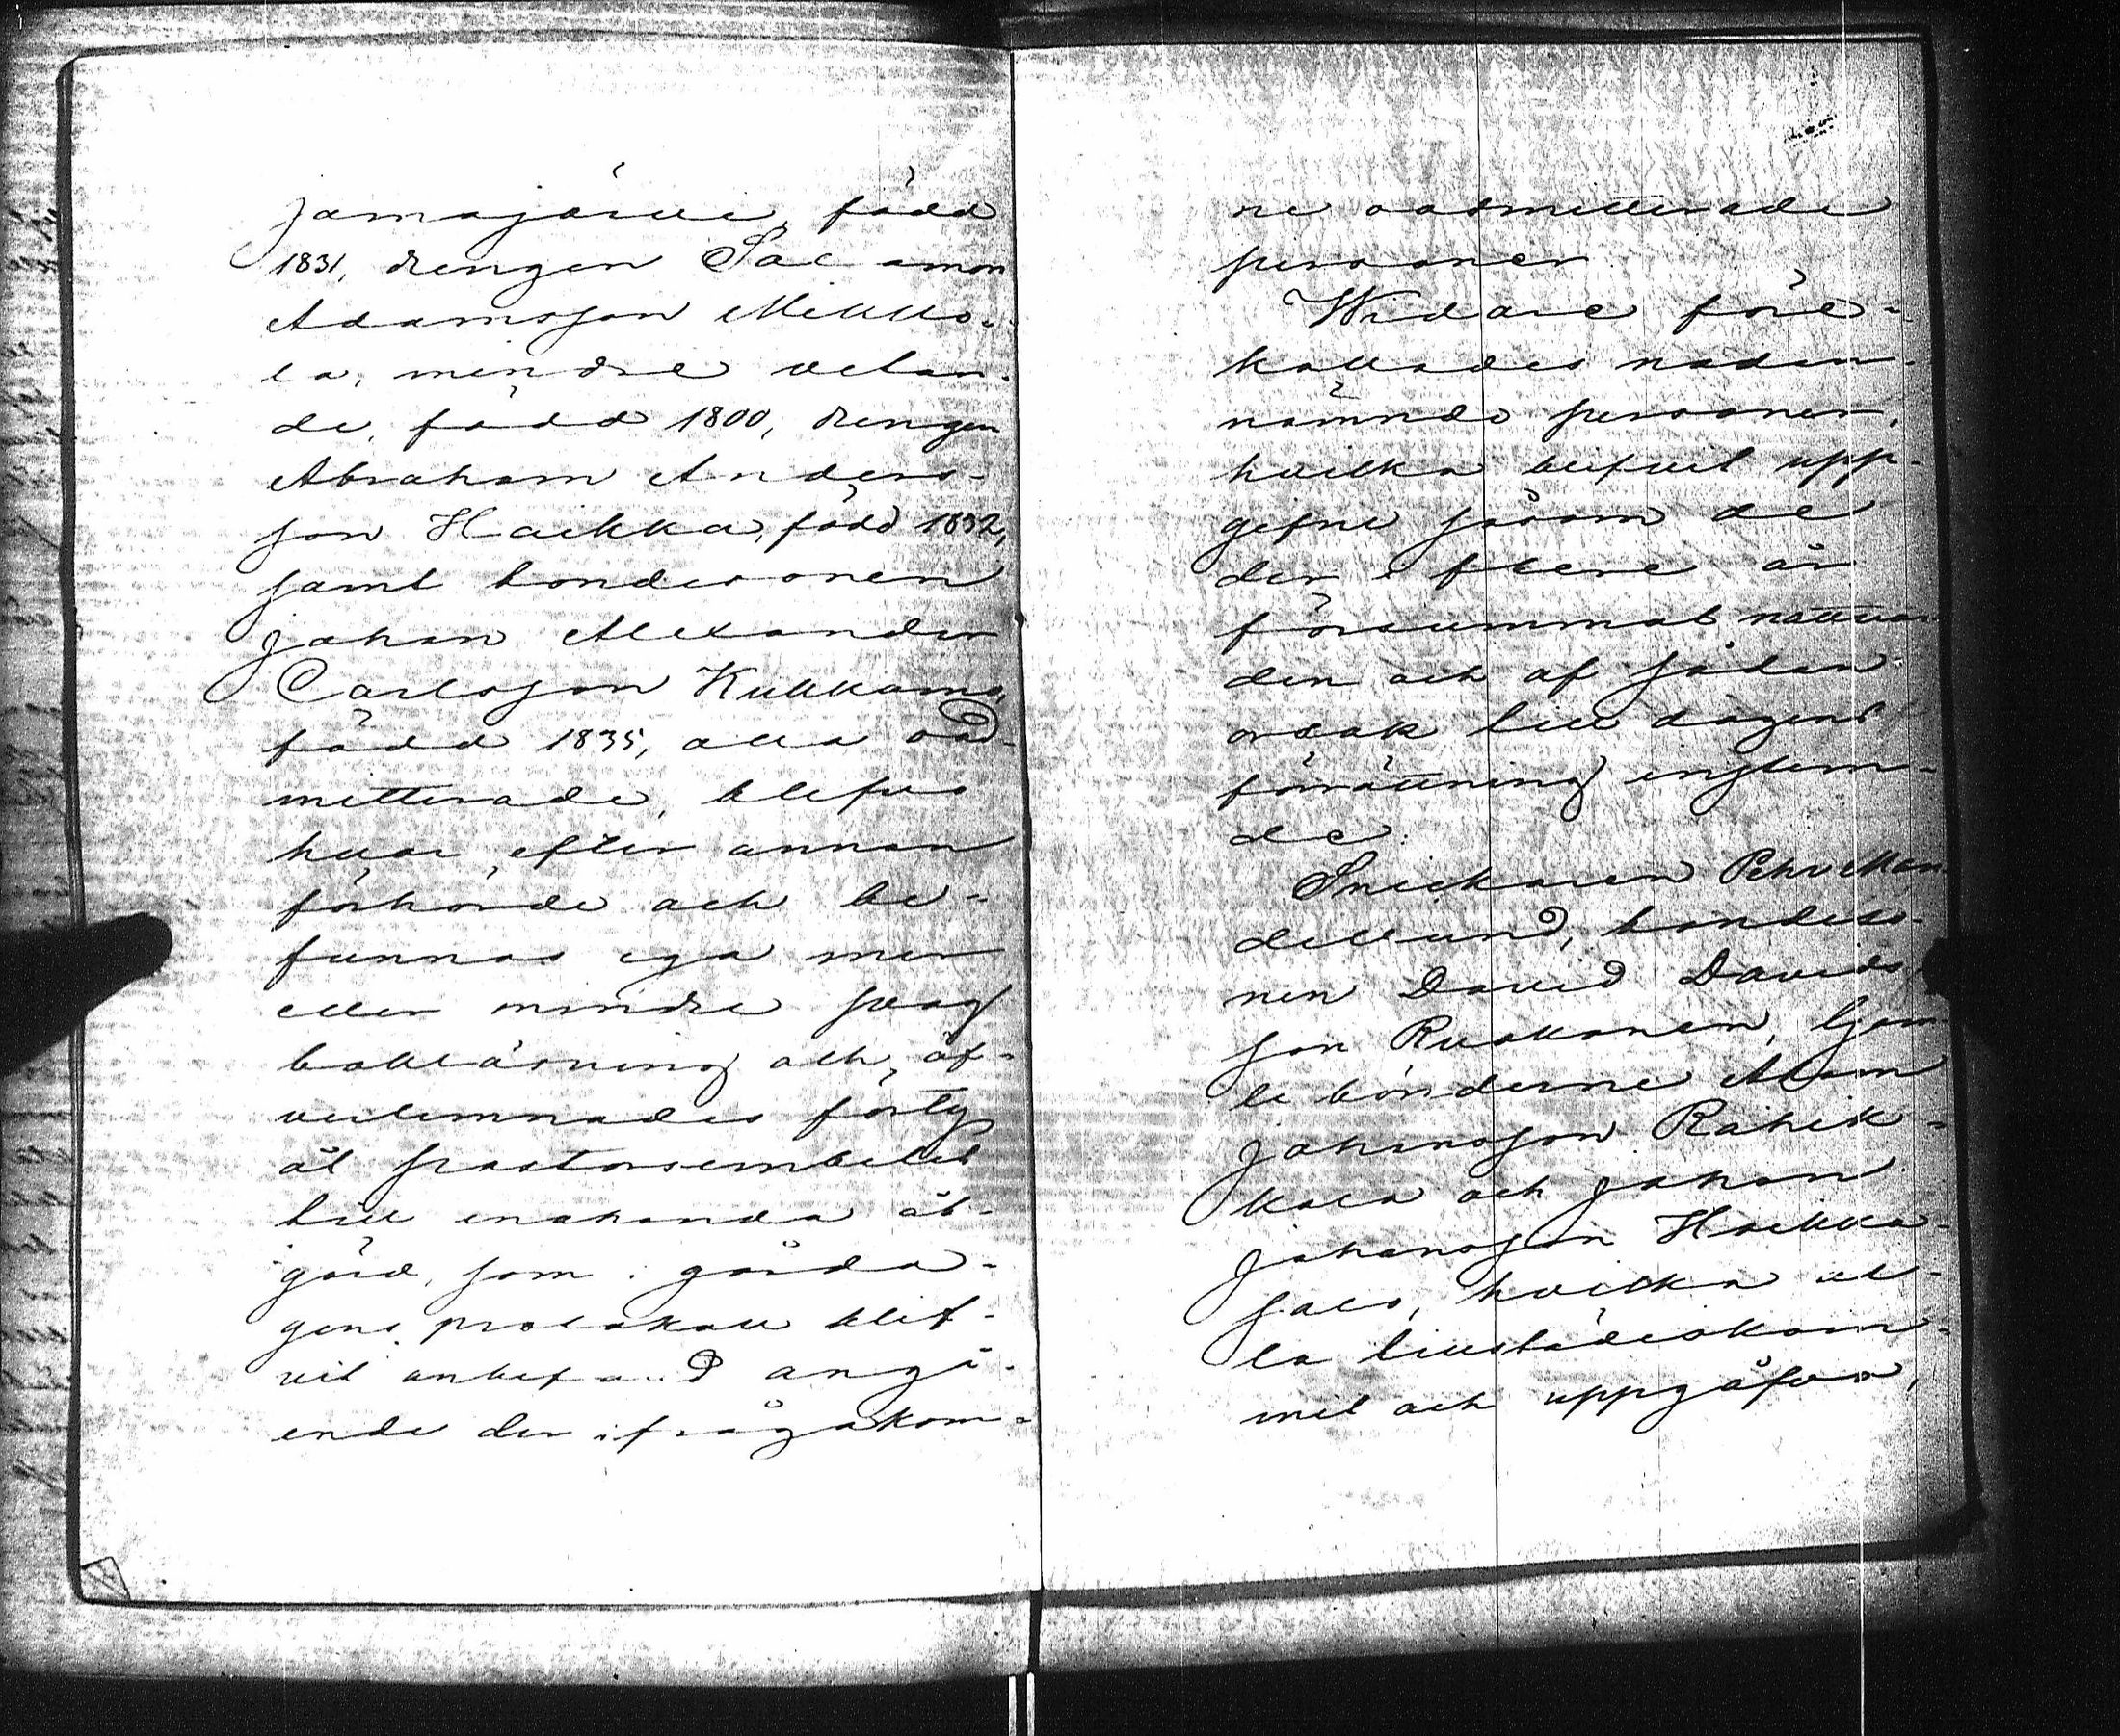 Jamajärvi, född
1831, drengen Salomon
Adamsson Mikko-
la, mindre vetan-
de, född 1800, drengen
Abraham Anders-
son Haikka, född 1832,
samt bondesonen
Johan Alexander
Carlsson Kukkama,
född 1835, alla oad-
mitterade, blefvo
hvar efter annan
förhörde och be-
funnos ega mer
eller mindre svag
bokläsning och öf-
verlemnades förty
åt pastorsembetet
till enahanda åt-
gärd, som i gårda-
gens protokoll blif-
vit anbefalld angå-
ende der ifrågakom-
ne oadmitterade
personer.
Widare före-
kallades nedan-
nämnde personer,
hvilka blifvit upp-
gefne såsom de
der i flere år
försummat nattvar-
den och af sådan
orsak till dagens
förrättning instem-
de:
Snickaren Pehr Man-
dellund, bondeso-
nen David Davids-
son Ruokonen,
bönderne Adam
Johansson Rahik-
kala och Johan
Johansson Haikka-
salo, hvilka al-
la tillstädeskom-
mit och uppgåfvo,